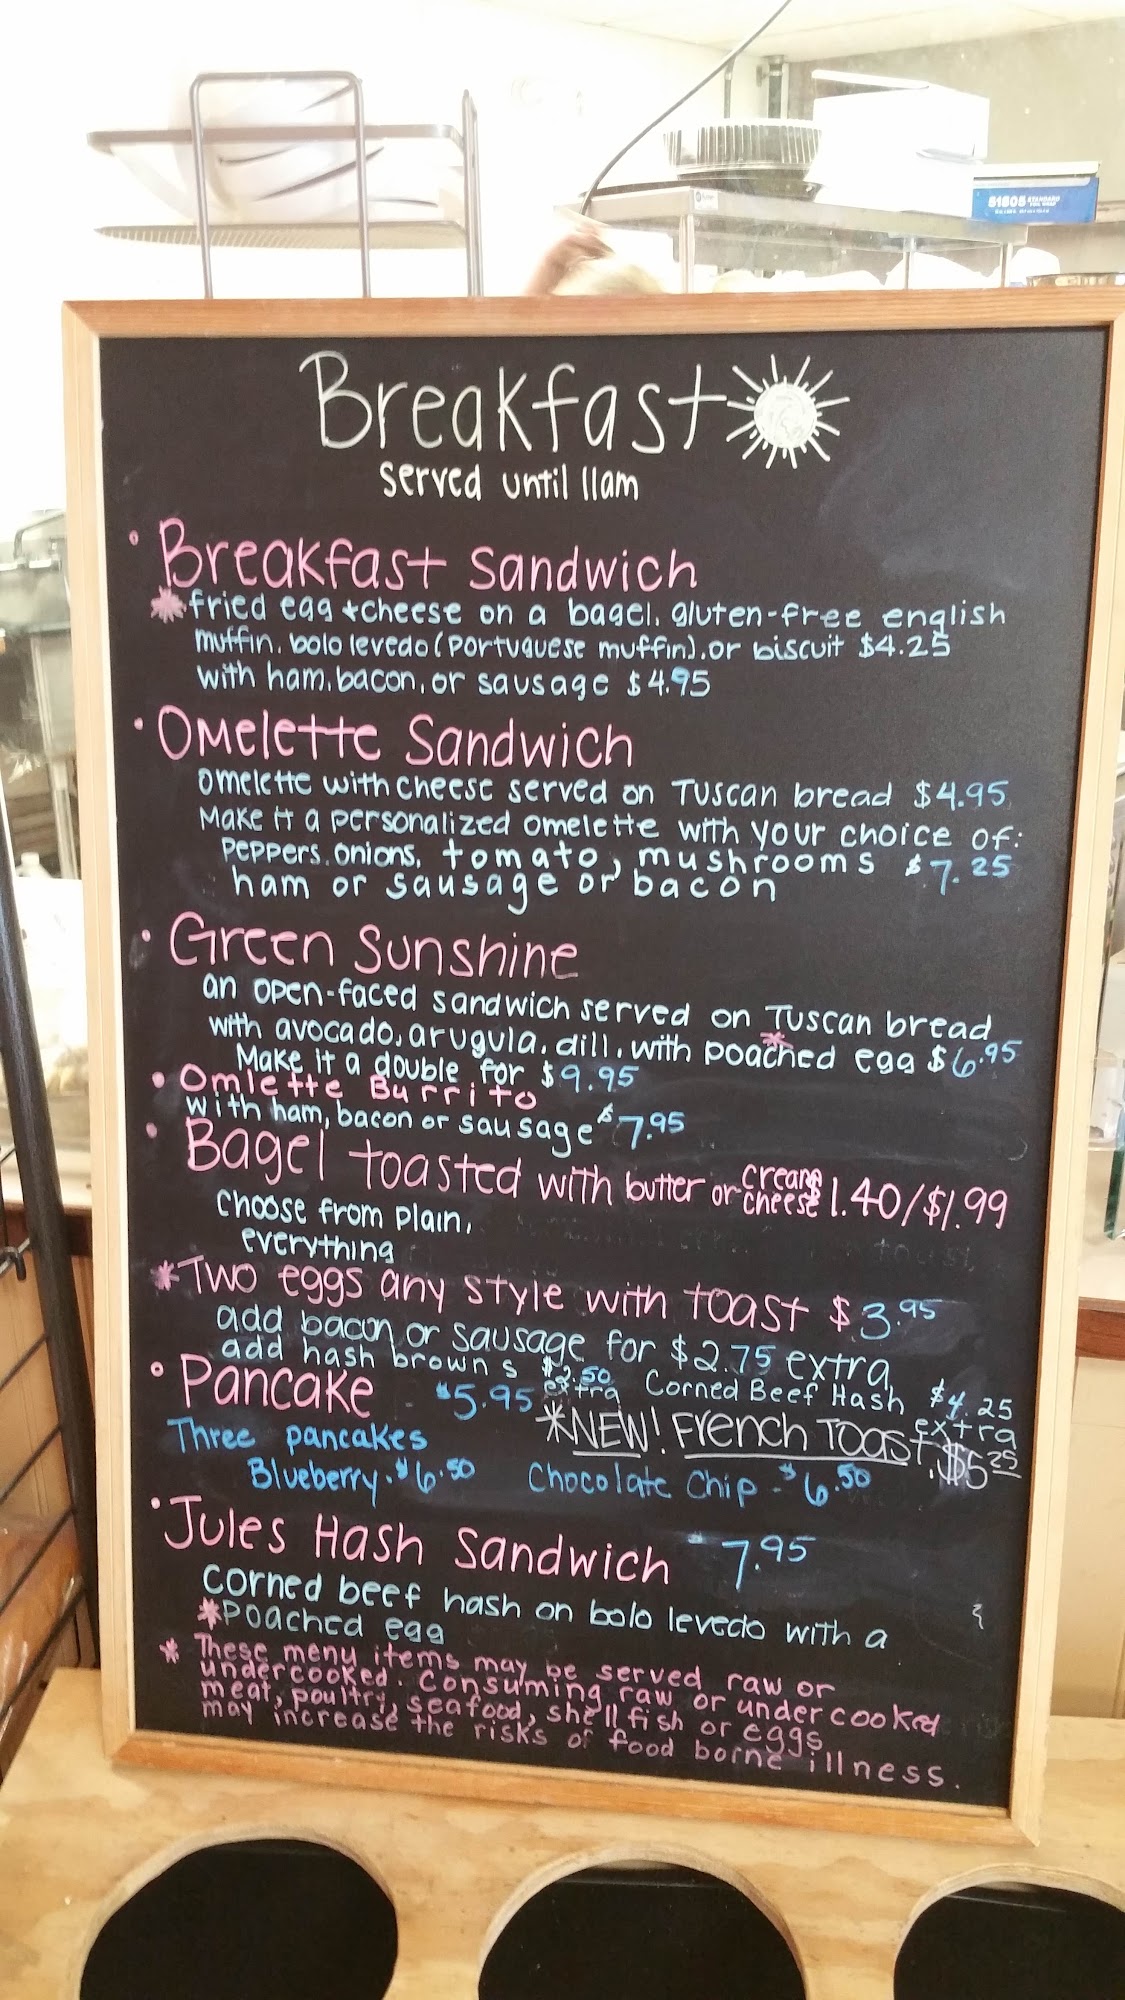 51505 STANDARD
Breakfast
served until 11am
Breakfast Sandwich
*fried egg + cheese on a bagel, gluten-free english
muffin, bolo levedo (Portuguese muffin), or biscuit $4.25
with ham, bacon, or sausage $4.95
Omelette Sandwich
omelette with cheese served on Tuscan bread $4.95
Make it a personalized omelette with your choice of:
Peppers, onions, tomato, mushrooms $7.25
ham or sausage or bacon
Green Sunshine
an open-faced sandwich served on Tuscan bread
with avocado, arugula, dill, with *poached egg $6.95
Make it a double for $9.95
Omlette Burrito
with ham, bacon or sausage $7.95
Bagel toasted with butter or cream cheese $1.40/$1.99
Choose from plain,
everything
*Two eggs any style with toast $3.95
add bacon or sausage for $2.75 extra
add hash browns $2.50 extra Corned Beef Hash $4.25 extra
Pancake - $5.95
*NEW! French Toast $5.25
Three pancakes
Blueberry - $6.50 Chocolate Chip - $6.50
Jules Hash Sandwich $7.95
corned beef hash on bolo levedo with a
*Poached egg
* These menu items may be served raw or
undercooked. Consuming raw or undercooked
meat, poultry, seafood, shellfish or eggs
may increase the risks of food borne illness.